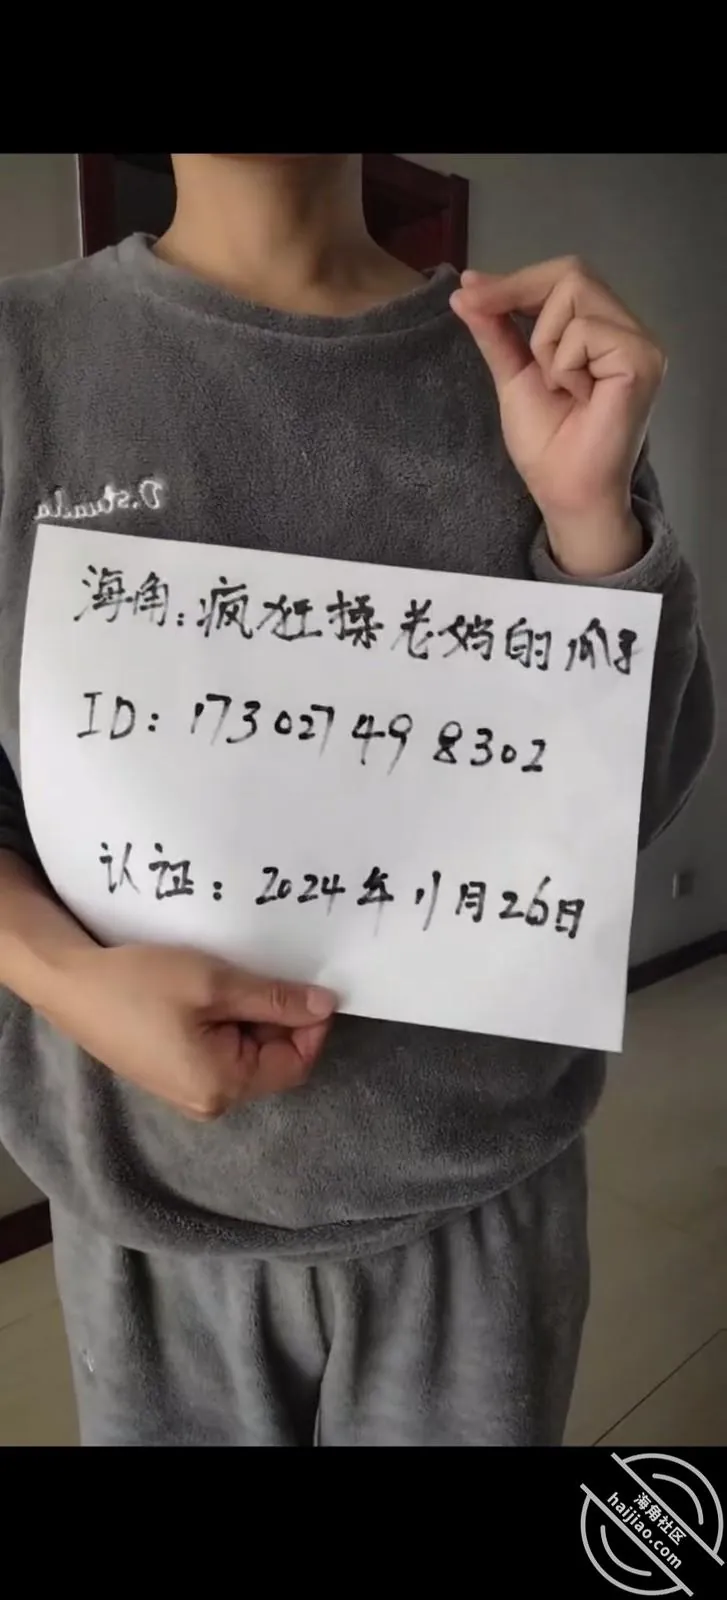 D.studula
海角：疯狂操老妈的瓜子
ID：17302749 8302
认证：2024年11月26日
海角社区
haijiao.com